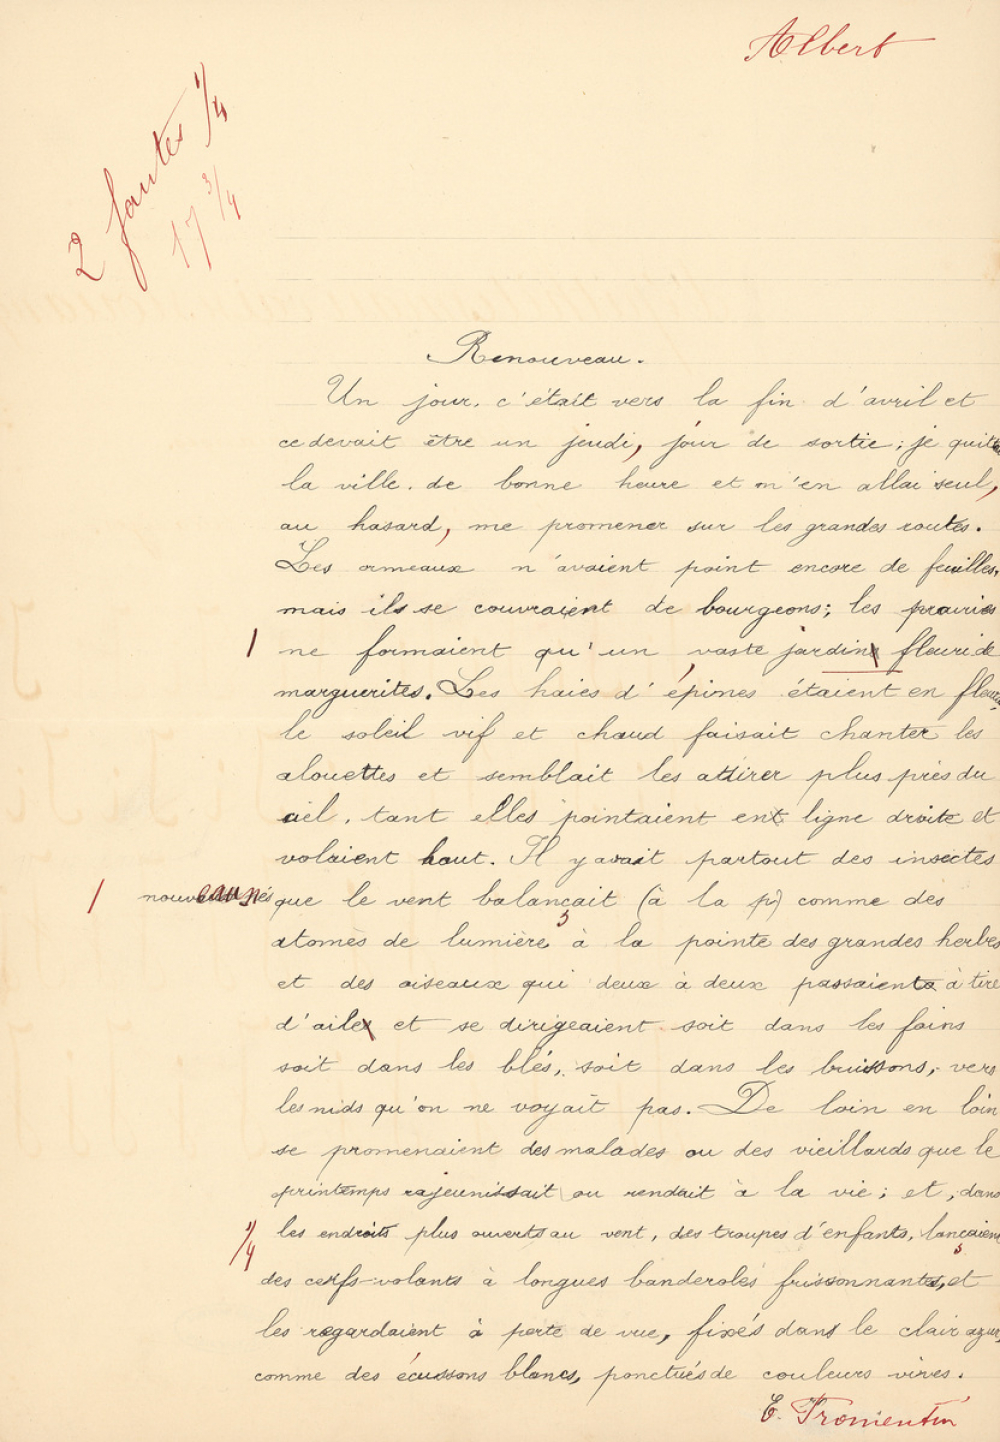 Albert
2 fautes 1/4
17 3/4
Renouveau.
Un jour. c'était vers la fin d'avril et
ce devait être un jeudi, jour de sortie; je quittai
la ville. de bonne heure et m'en allai seul,
au hasard, me promener sur les grandes routes.
Les ormeaux n'avaient point encore de feuilles,
mais ils se couvraient de bourgeons; les prairies
1 ne formaient qu'un vaste jardin fleuri de
marguerites. Les haies d'épines étaient en fleurs,
le soleil vif et chaud faisait chanter les
alouettes et semblait les attirer plus près du
ciel, tant elles pointaient en ligne droite et
volaient haut. Il y avait partout des insectes
1 nouveaux nés que le vent balançait (à la p) comme des
atomes de lumière, à la pointe des grandes herbes
et des oiseaux qui deux à deux passaient à tire
d'aile et se dirigeaient soit dans les foins
soit dans les blés, soit dans les buissons, vers
les nids qu'on ne voyait pas. De loin en loin
se promenaient des malades ou des vieillards que le
printemps rajeunissait ou rendait à la vie; et, dans
1/4 les endroits plus ouverts au vent, des troupes d'enfants, lançaient
des cerfs-volants à longues banderoles frissonnantes, et
les regardaient à perte de vue, fixés dans le clair azur,
comme des écussons blancs, ponctués de couleurs vives.
E. Fromentin